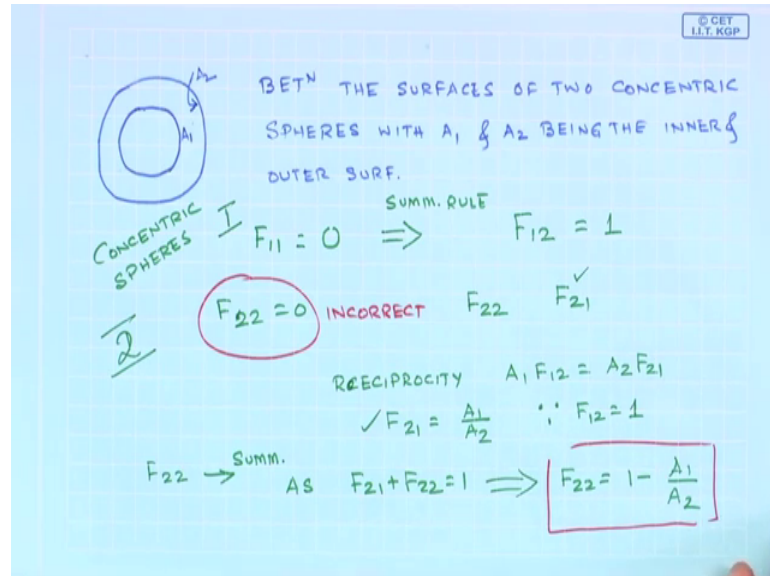 © CET
I.I.T. KGP
A2
A1
BETᴺ THE SURFACES OF TWO CONCENTRIC
SPHERES WITH A1 & A2 BEING THE INNER &
OUTER SURF.
CONCENTRIC
SPHERES
I
F11 = 0 ⟹ SUMM. RULE F12 = 1
2
F22 = 0 INCORRECT F22 F21 ✓
RECIPROCITY A1 F12 = A2 F21
✓ F21 = A1/A2 ∵ F12 = 1
F22 → SUMM. AS F21 + F22 = 1 ⟹ F22 = 1 - A1/A2